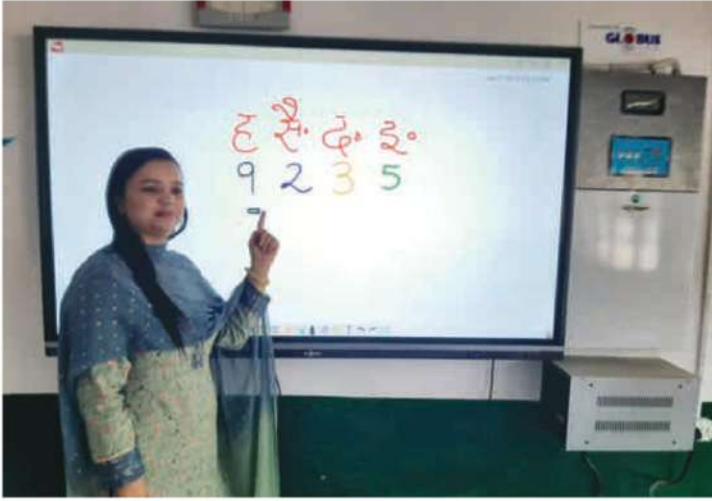 GLOBUS
ह सै. द. इ.
9 2 3 5
-